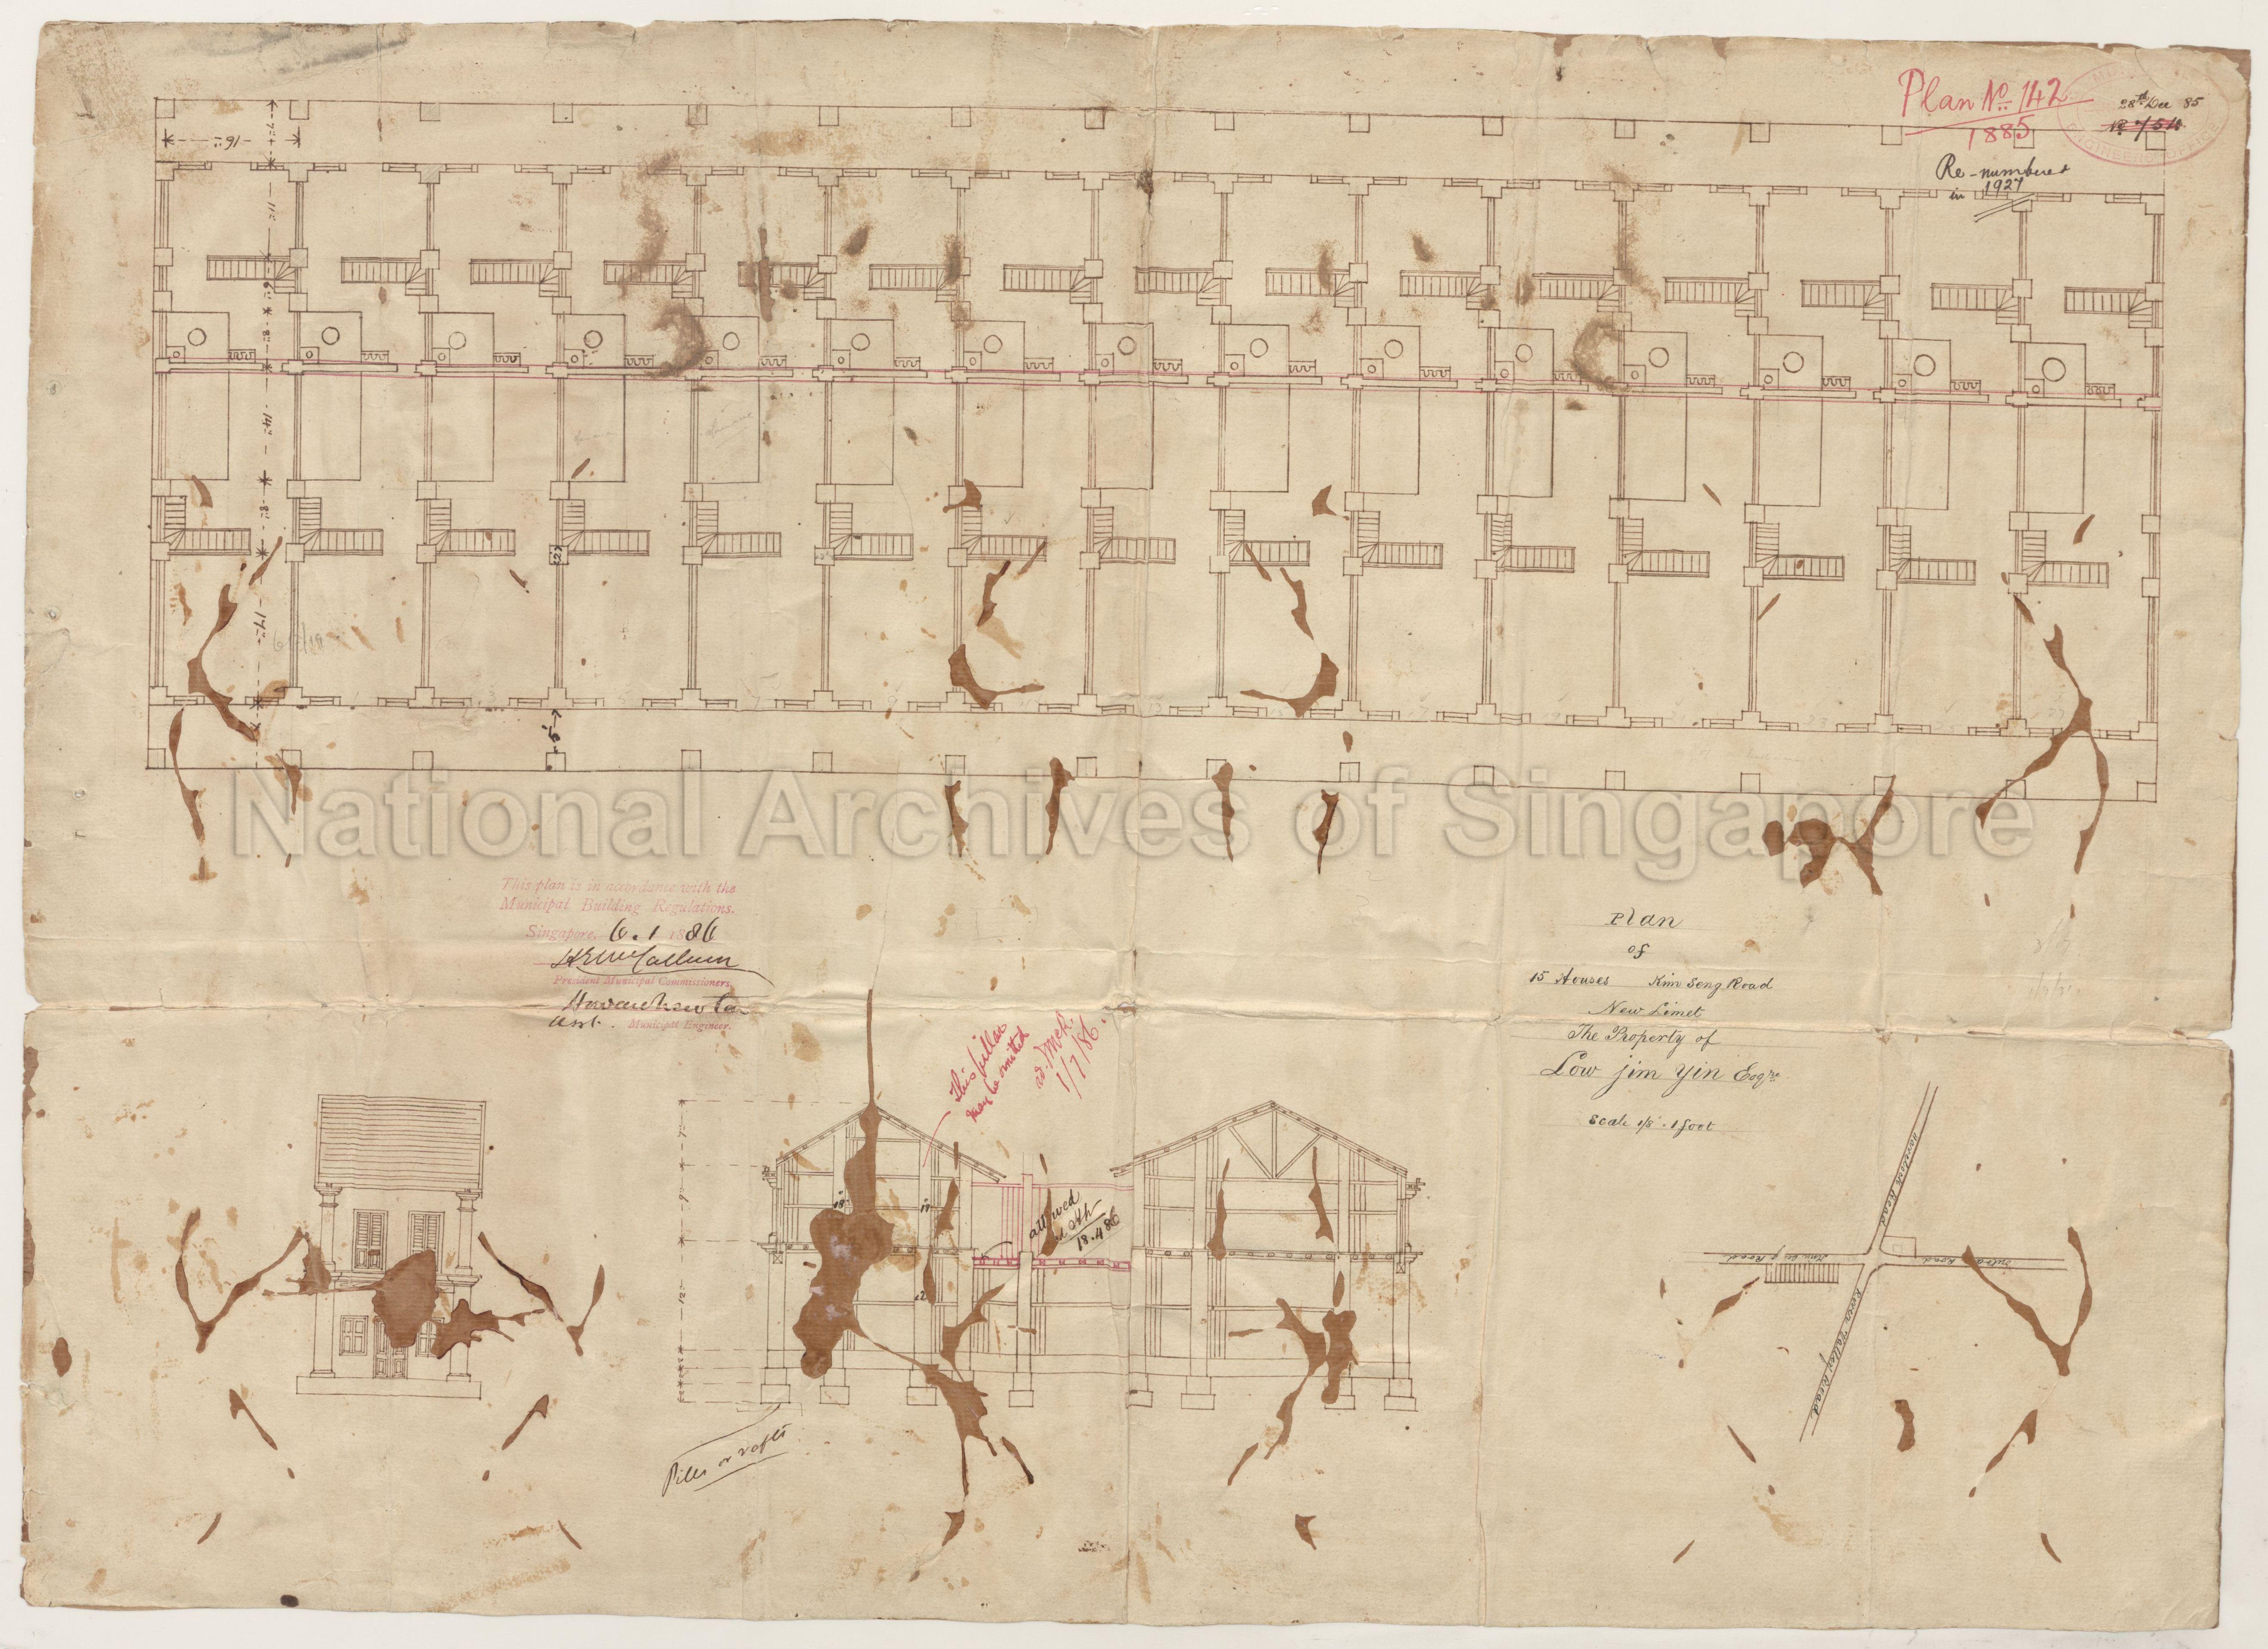 Plan No. 142
1885
28th Dec 85
No 75
Re-numbered
in 1927
16'
7'
11'
6'
8'
14'
8'
17'
7'
5'
National Archives of Singapore
This plan is in accordance with the
Municipal Building Regulations.
Singapore, 6. 1 1886
H E McCallum
President Municipal Commissioners.
Asst. Municipal Engineer.
Plan
of
15 Houses Kim Seng Road
New Limet
The Property of
Low jim yin Esqre
Scale 1/8 . 1 foot
This pillar
may be omitted
1/7/86.
allowed
18.4.86
7'
9'
12'
Piles or rafts
Havelock Road
Kim Seng Road
Outram Road
River Valley Road